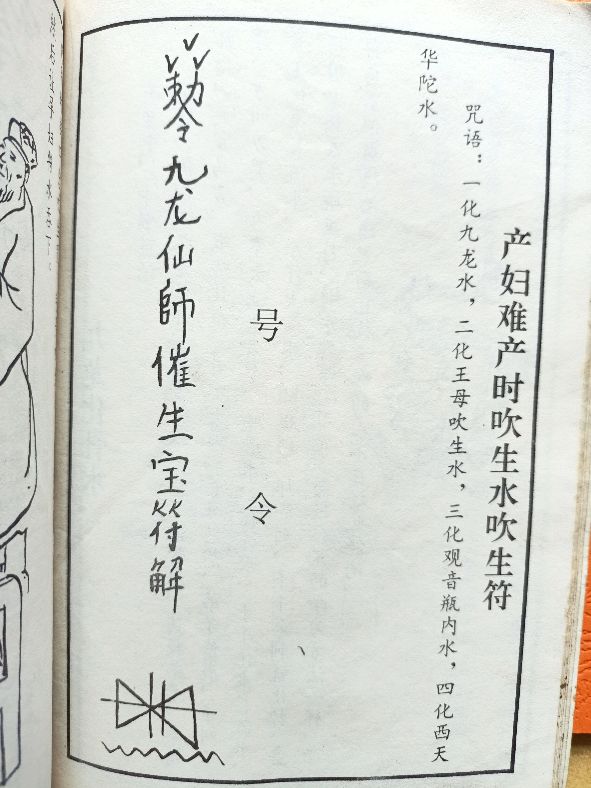 产妇难产时吹生水吹生符
咒语：一化九龙水，二化王母吹生水，三化观音瓶内水，四化西天
华陀水。
号令
敕令九龙仙師催生宝符解